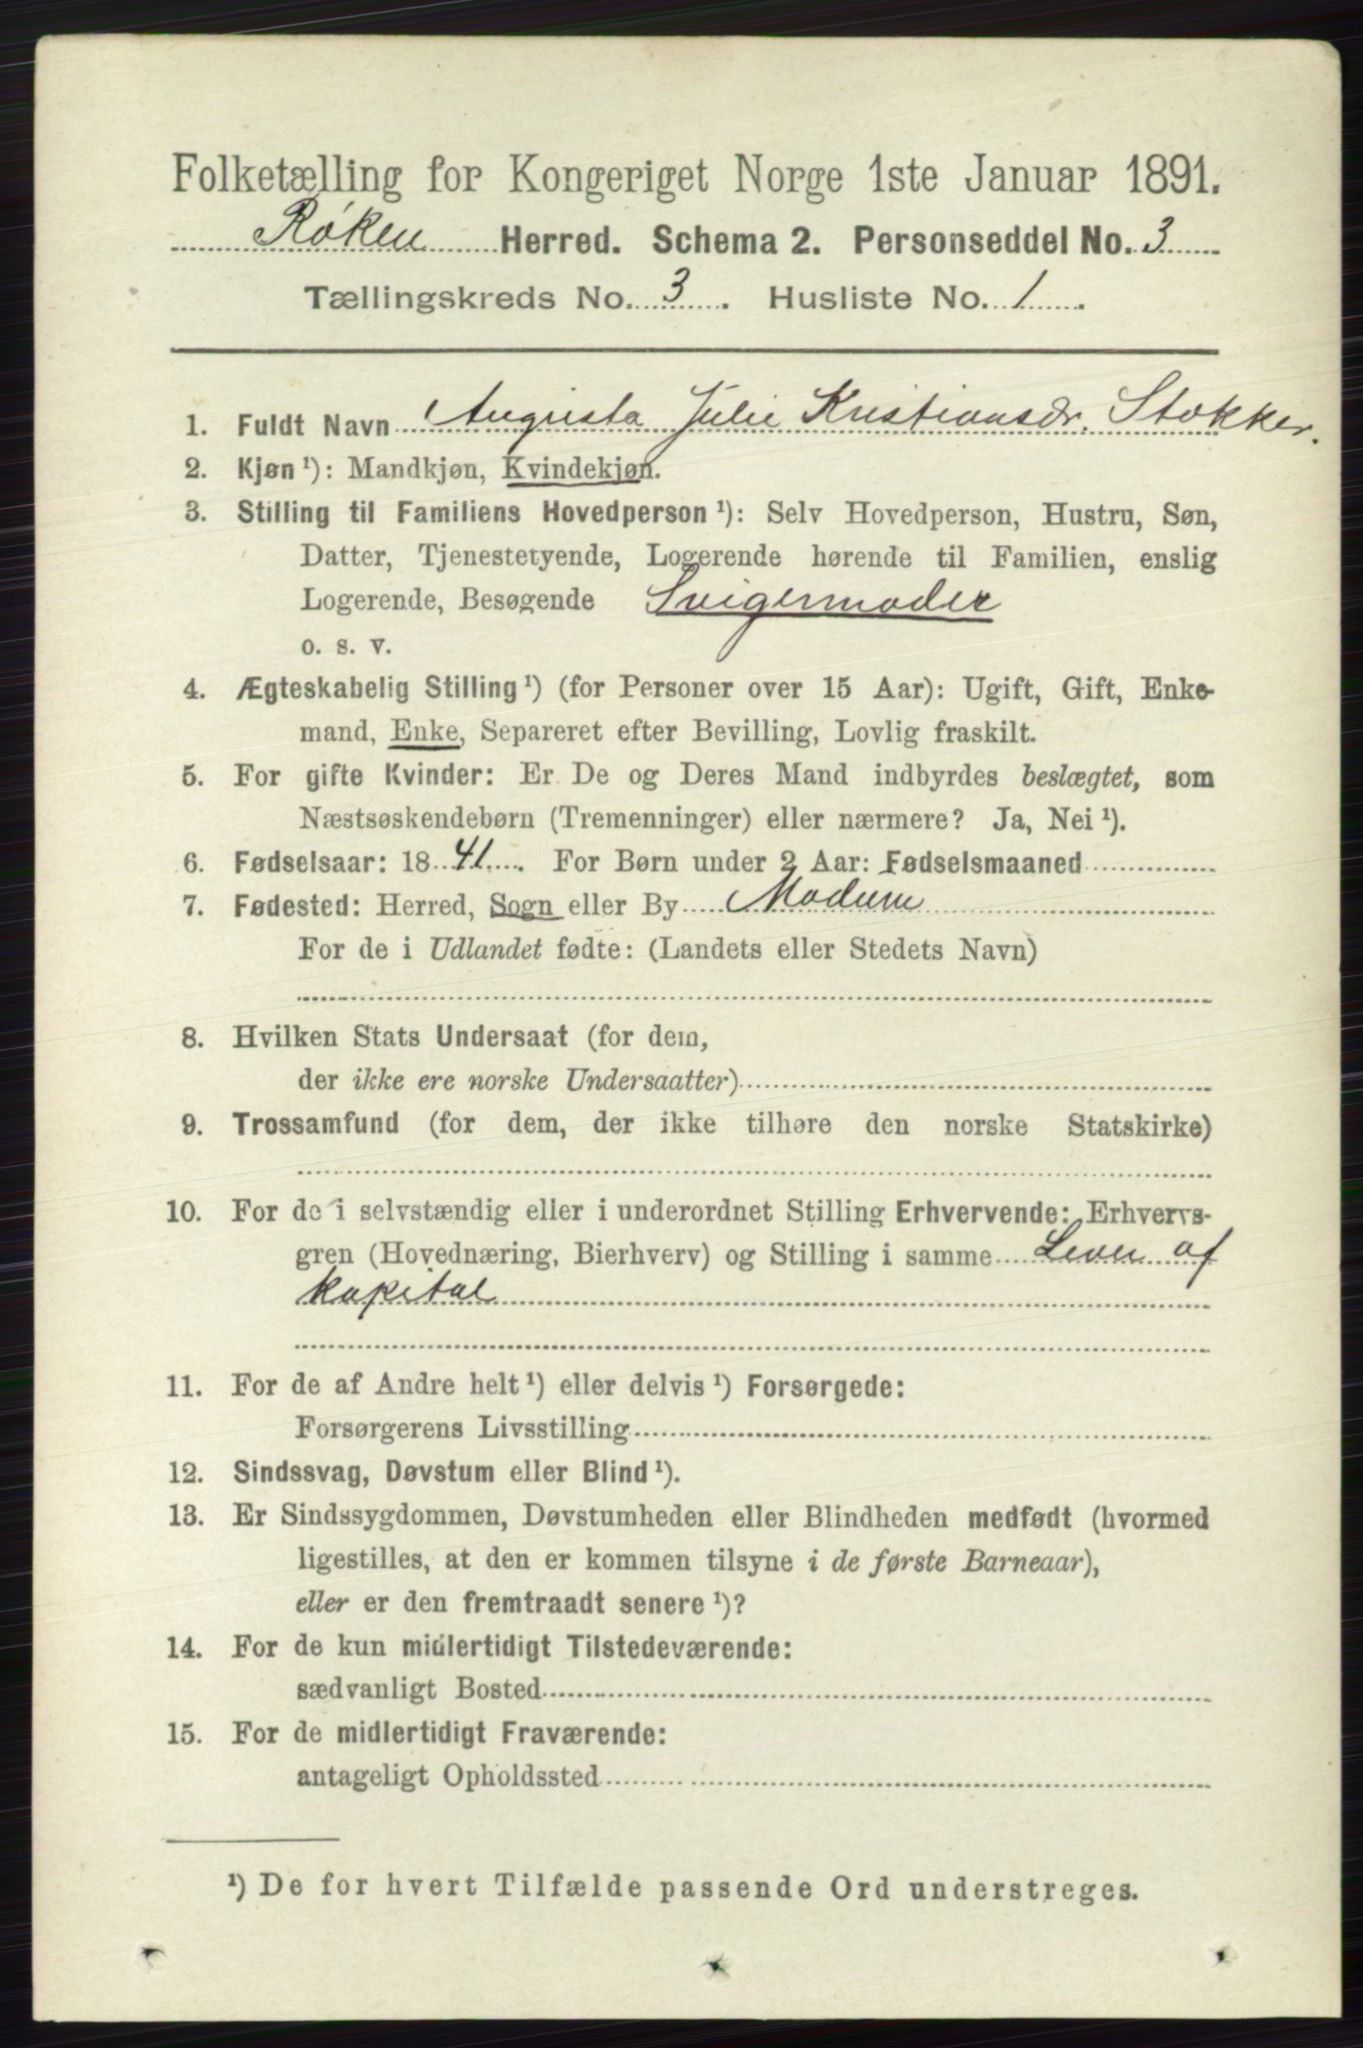 Folketælling for Kongeriget Norge 1ste Januar 1891.
Røken Herred. Schema 2. Personseddel No. 3
Tællingskreds No. 3. Husliste No. 1.
1. Fuldt Navn Augusta Julie Kristiansdr. Stokker.
2. Kjøn ¹): Mandkjøn, Kvindekjøn.
3. Stilling til Familiens Hovedperson ¹): Selv Hovedperson, Hustru, Søn,
Datter, Tjenestetyende, Logerende hørende til Familien, enslig
Logerende, Besøgende Svigermoder
o. s. v.
4. Ægteskabelig Stilling ¹) (for Personer over 15 Aar): Ugift, Gift, Enke-
mand, Enke, Separeret efter Bevilling, Lovlig fraskilt.
5. For gifte Kvinder: Er De og Deres Mand indbyrdes beslægtet, som
Næstsøskendebørn (Tremenninger) eller nærmere? Ja, Nei ¹).
6. Fødselsaar: 1841. For Børn under 2 Aar: Fødselsmaaned
7. Fødested: Herred, Sogn eller By Modum
For de i Udlandet fødte: (Landets eller Stedets Navn)
8. Hvilken Stats Undersaat (for dem,
der ikke ere norske Undersaatter)
9. Trossamfund (for dem, der ikke tilhøre den norske Statskirke)
10. For de i selvstændig eller i underordnet Stilling Erhvervende: Erhvervs-
gren (Hovednæring, Bierhverv) og Stilling i samme Lever af
kapital
11. For de af Andre helt ¹) eller delvis ¹) Forsørgede:
Forsørgerens Livsstilling
12. Sindssvag, Døvstum eller Blind ¹).
13. Er Sindssygdommen, Døvstumheden eller Blindheden medfødt (hvormed
ligestilles, at den er kommen tilsyne i de første Barneaar),
eller er den fremtraadt senere ¹)?
14. For de kun midlertidigt Tilstedeværende:
sædvanligt Bosted
15. For de midlertidigt Fraværende:
antageligt Opholdssted
¹) De for hvert Tilfælde passende Ord understreges.